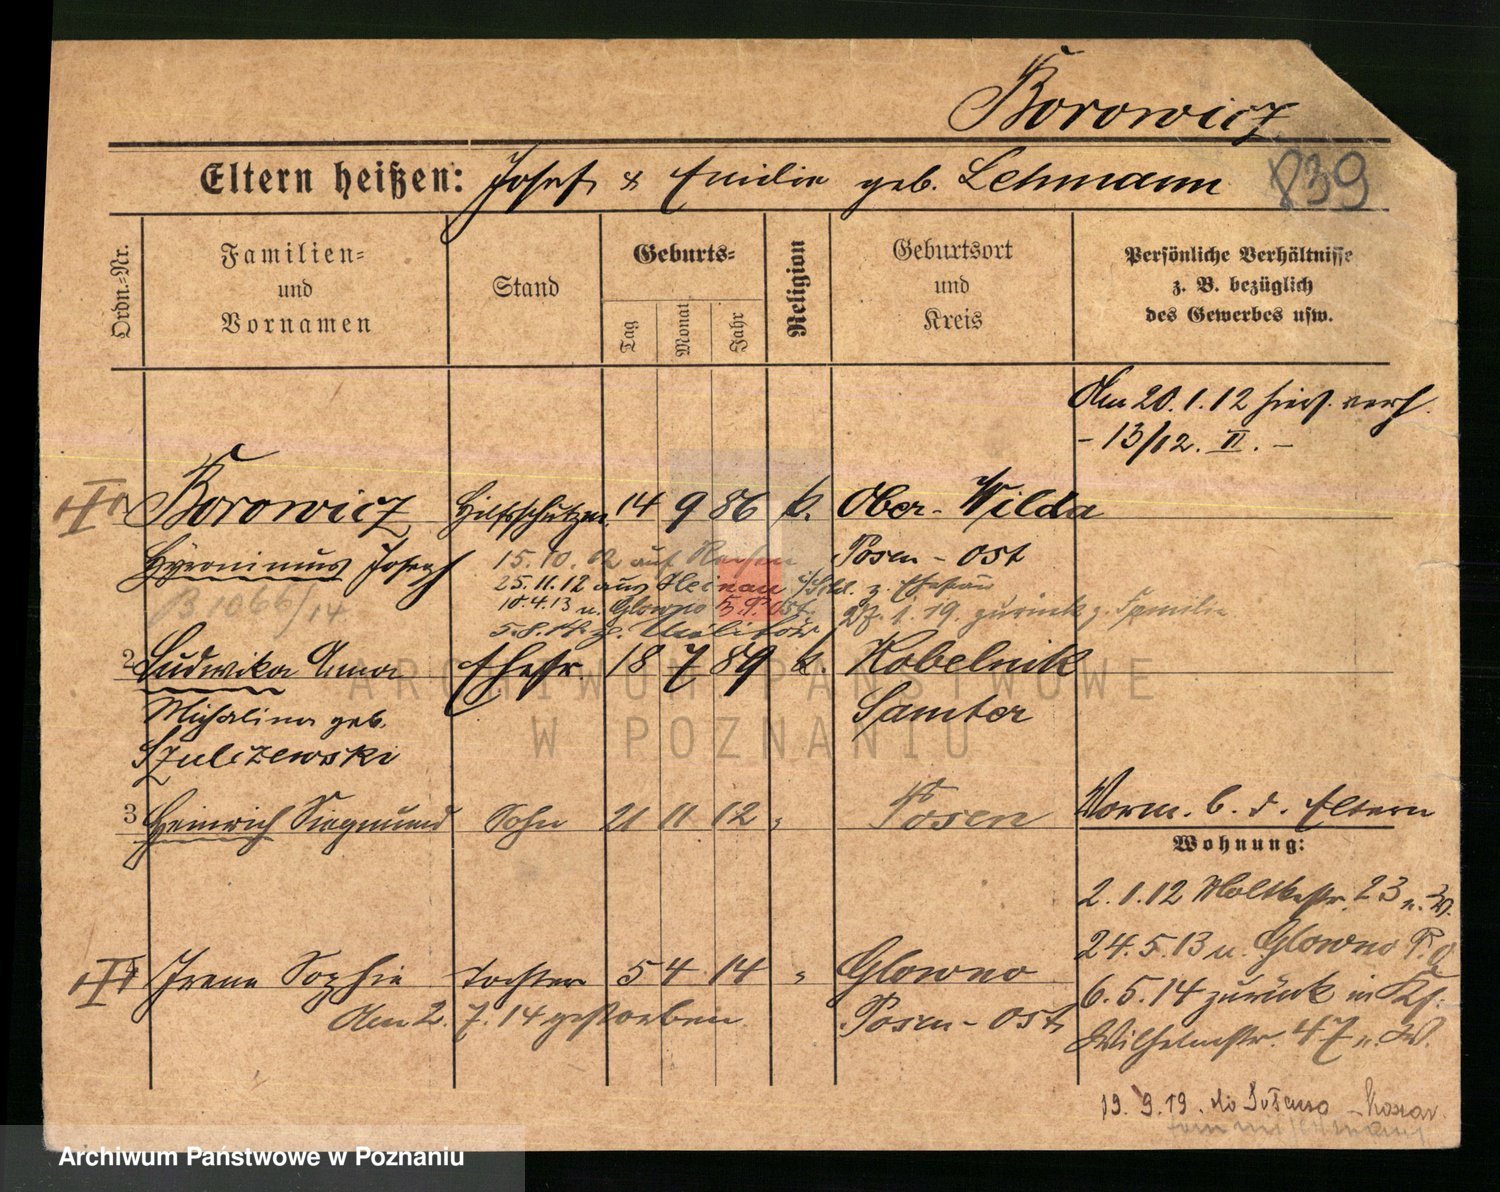 Borowicz
Eltern heißen: Josef & Emilie geb. Lehmann
839
Ordn.-Nr.
Familien- und Vornamen
Stand
Geburts-
Tag
Monat
Jahr
Religion
Geburtsort und Kreis
Persönliche Verhältnisse z. B. bezüglich des Gewerbes usw.
Am 20.1.12 hier verh.
- 13/12. II. -
Borowicz Hilfsschutzm. 14 9 86 k. Ober-Wilda
Hyeronimus Joseph Posen-Ost
15.10.02 auf Reisen
25.11.12 aus
10.4.13 n. Glowno b. P. Ost.
27.1.19. zurück z. Familie
B 1066/14
5.8.14 z. Militär
2 Ludwika Anna Ehefr. 18 7 89 k. Kobelnik
Michalina geb. Samter
Szulczewski
3 Heinrich Siegmund Sohn 21 11 12 " Posen
Vorm. b. d. Eltern
Wohnung:
2.1.12 Moltkestr. 23 n. W.
24.5.13 n. Glowno P. O.
4 Irene Sophie Tochter 5 4 14 " Glowno
Posen-Ost
Am 2.7.14 gestorben
6.5.14 zurück in
Wilhelmstr. 47 n. W.
19.9.19. do
ARCHIWUM PAŃSTWOWE
W POZNANIU
Archiwum Państwowe w Poznaniu